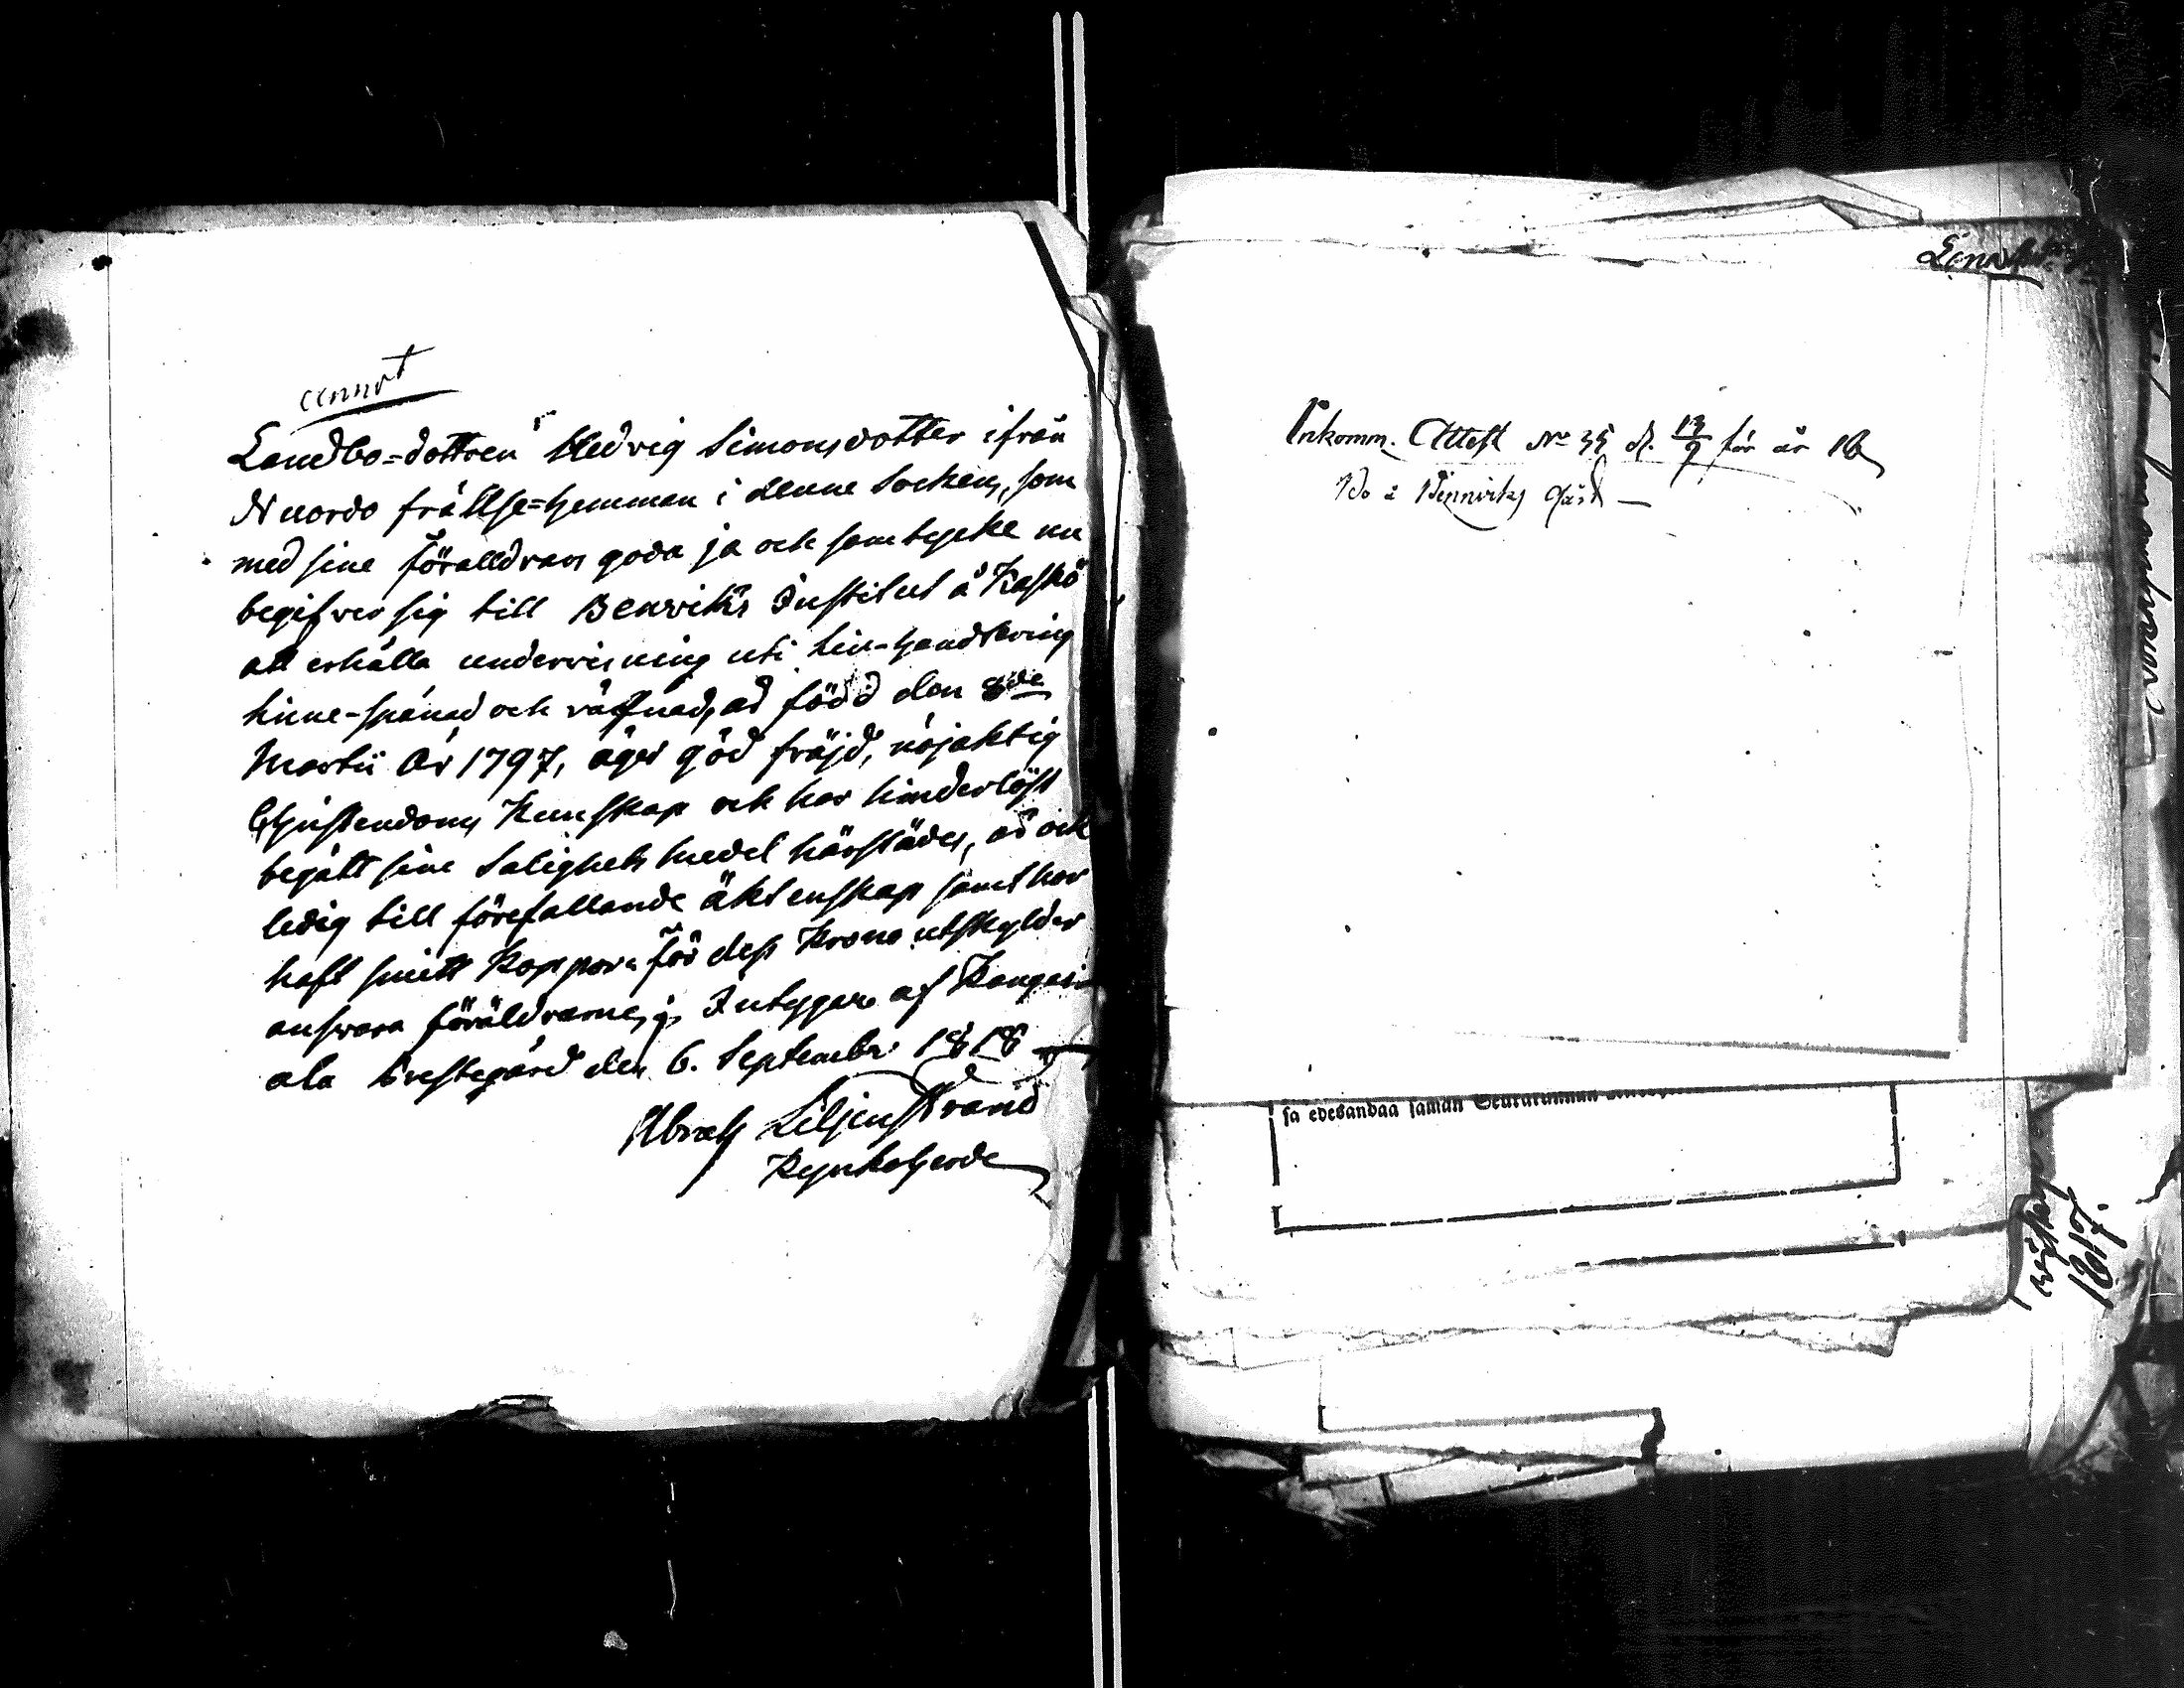 annot
Landbo=dottren Hedvig Simonsdotter ifrån
Nuoro frällse=hemman i denne Socken, som
med sine förälldrars goda ja och samtycke nu
begifver sig till Benviks Institut å Kaskö
att erhålla undervisning uti Lin-handtering
Linne-spånad och väfnad, är född den 8de
Martii År 1797, äger god fräjd, nöjaktig
Christendoms Kunskap och har hinderlöst
begått sine Salighets medel härstädes, är ock
ledig till förefallande äktenskap samt har
haft smitt koppor; för dess Krono utskylder
ansvara föräldrarne, Intygar af Kangas-
ala Prestegård den 6. Septembr. 1818
Abrah Liljenstrand
Kyrkoherde
Inkomm. Attest No 35 d. 13/9 för år 18
Do å Bennviks Gård —
sa edesandaa saman Seurakunnan
1817.